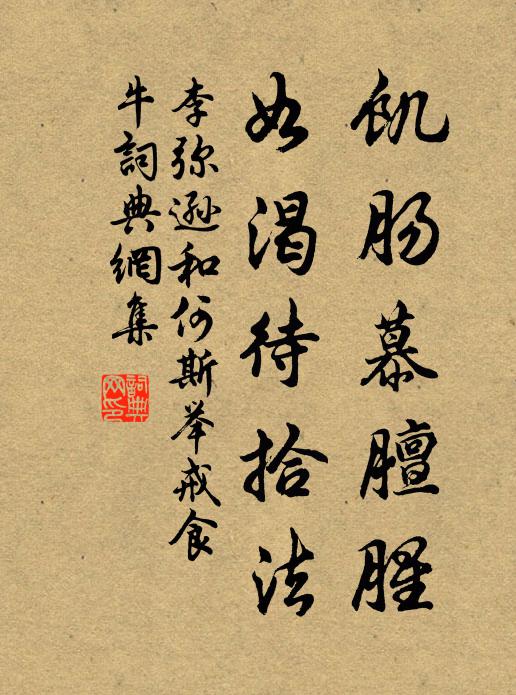 飢肠慕膻腥
如渴待拾法
李弥遜和何斯举戒食
牛詞典網集
詞典
网印